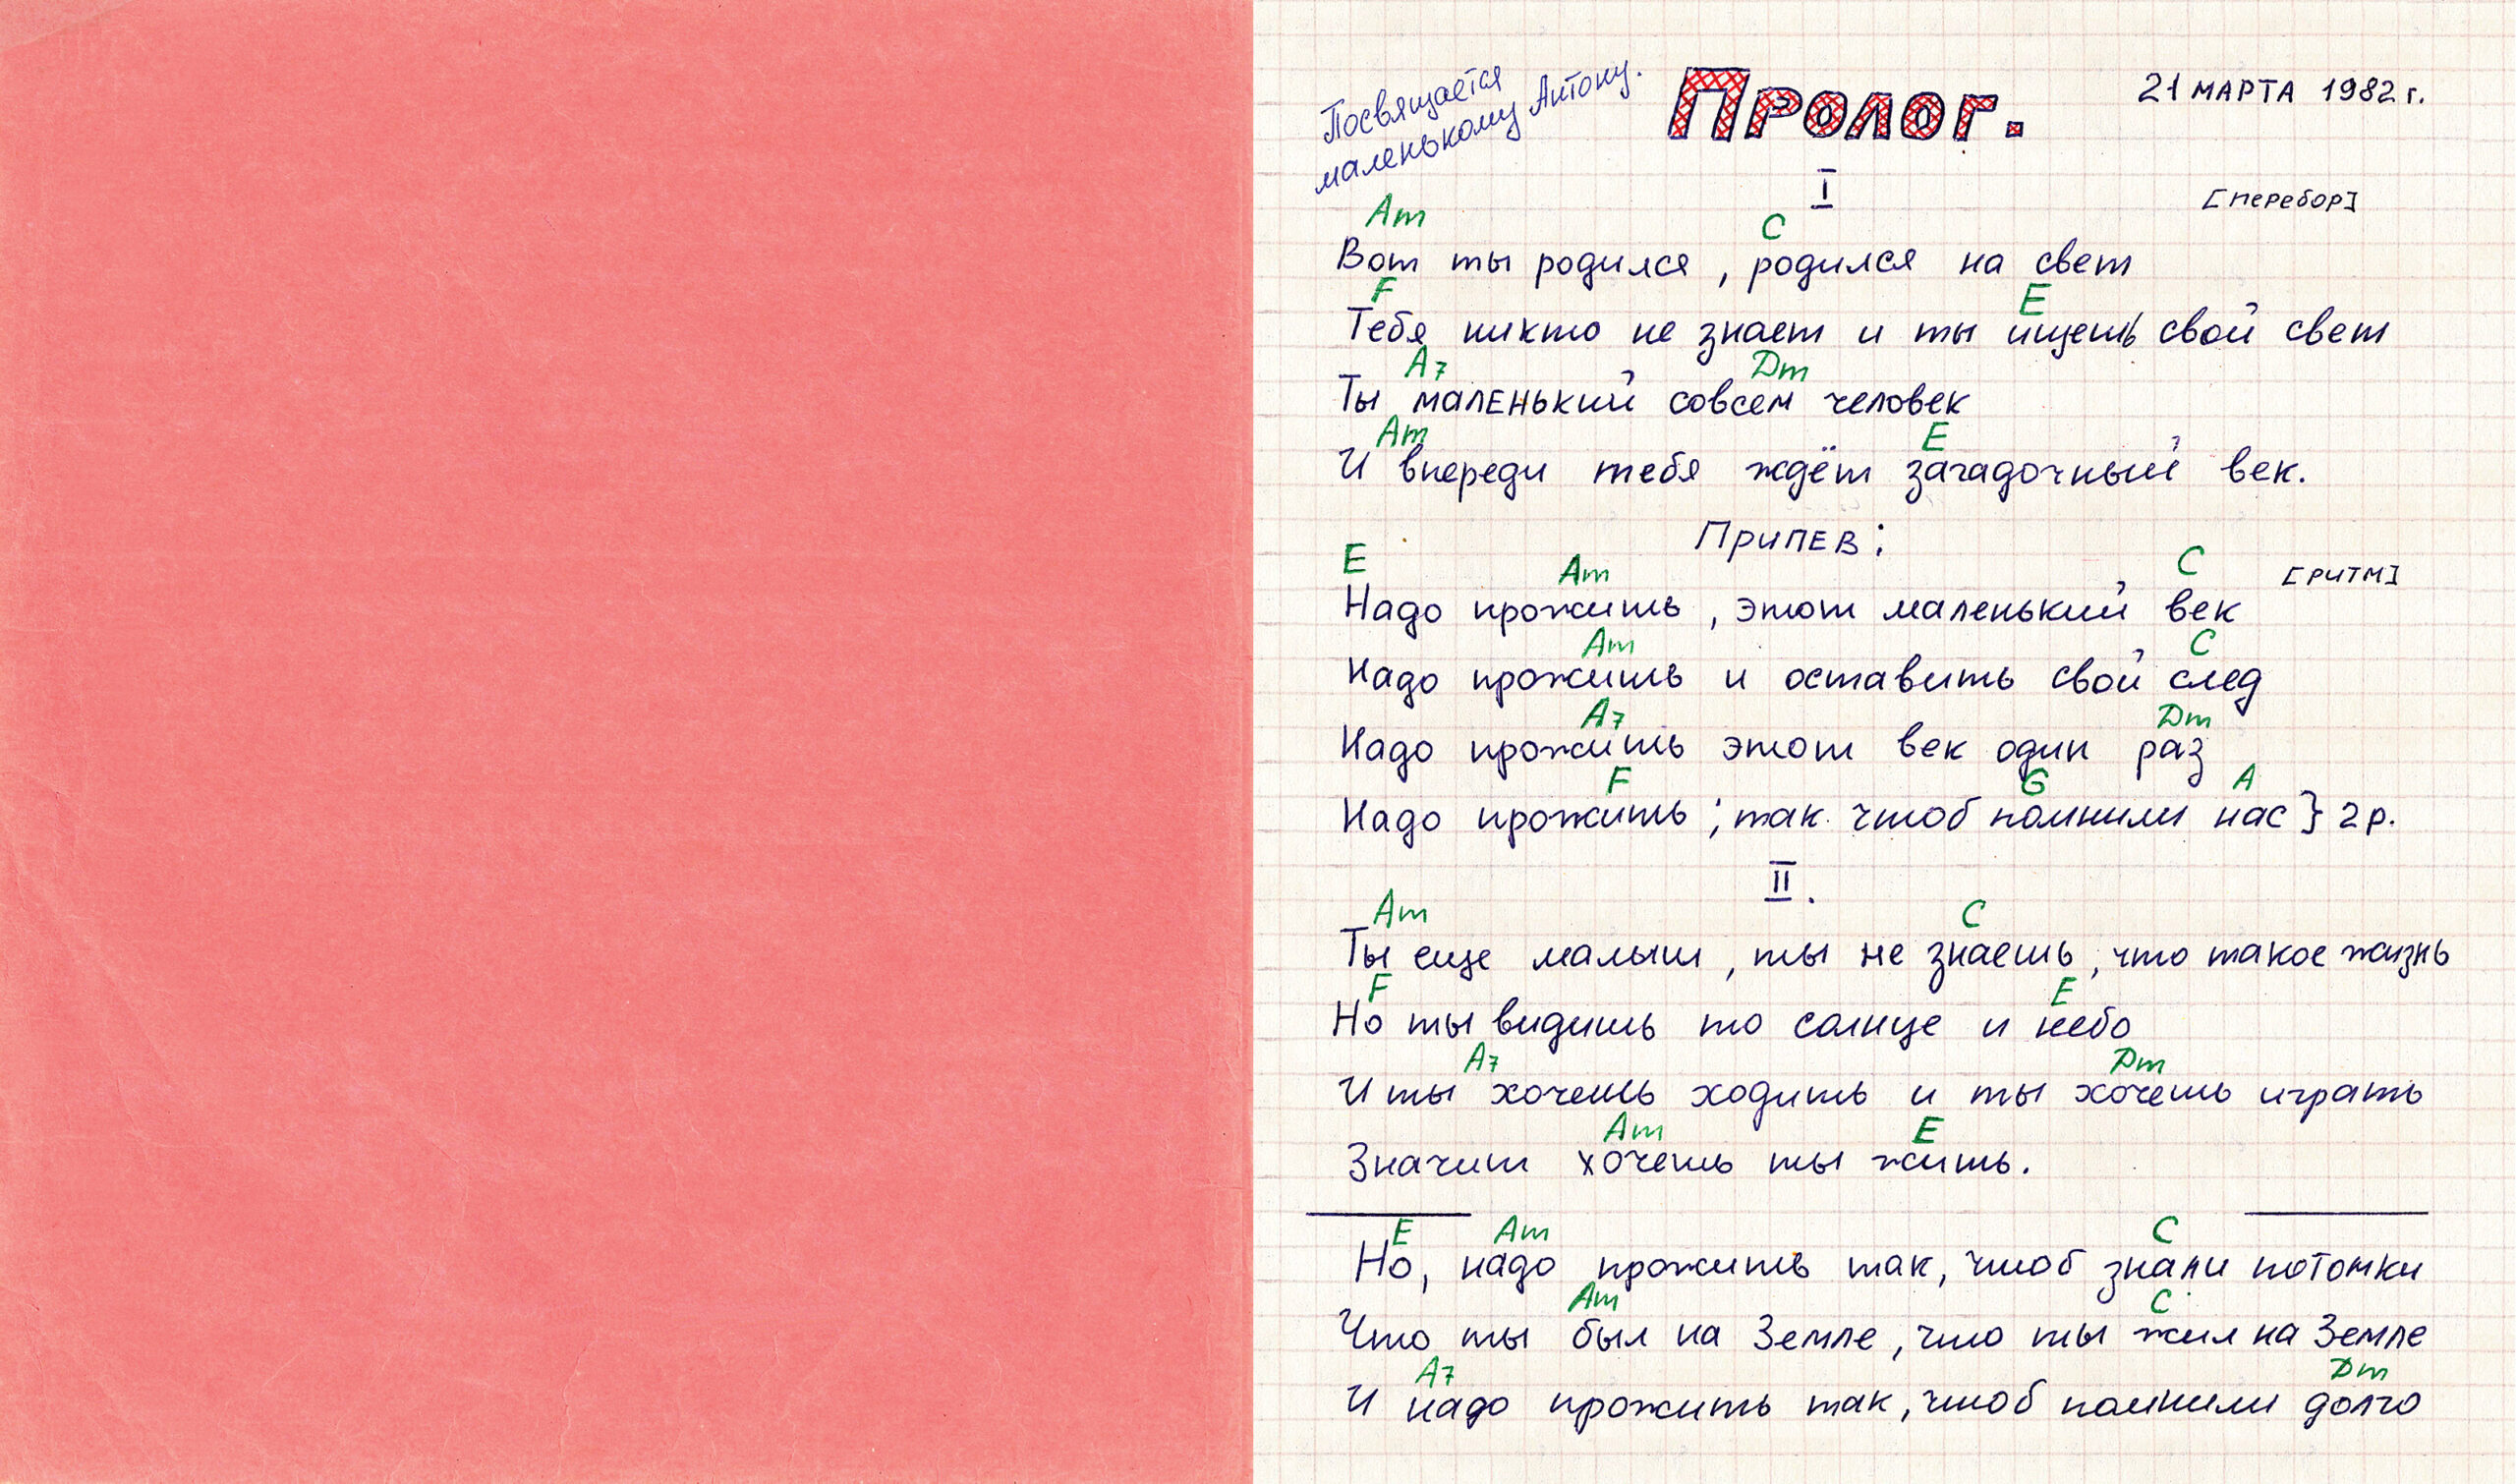 Посвящается
маленькому Антону.
Пролог.
21 МАРТА 1982 г.
I
[перебор]
Am C
Вот ты родился, родился на свет
F E
Тебя никто не знает и ты ищешь свой свет
A7 Dm
Ты маленький совсем человек
Am E
И впереди тебя ждёт загадочный век.
Припев:
E Am C [РИТМ]
Надо прожить, этот маленький век
Am C
Надо прожить и оставить свой след
A7 Dm
Надо прожить этот век один раз
F G A
Надо прожить; так чтоб помнили нас } 2 р.
II.
Am C
Ты еще малыш, ты не знаешь, что такое жизнь
F E
Но ты видишь то солнце и небо
A7 Dm
И ты хочешь ходить и ты хочешь играть
Am E
Значит хочешь ты жить.
E Am C
Но, надо прожить так, чтоб знали потомки
Am C
Что ты был на Земле, что ты жил на Земле
A7 Dm
И надо прожить так, чтоб помнили долго